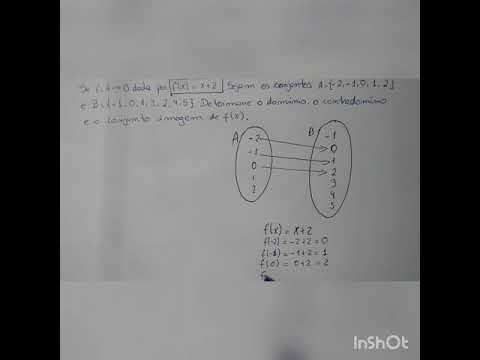 f: A → B dada por f(x) = x+2 Sejam os conjuntos A={-2,-1,0,1,2}
e B={-1,0,1,3,2,4,5}. Determine o domínio, o contradomínio
e o conjunto imagem de f(x).
A
B
-2
-1
0
1
2
-1
0
1
2
3
4
5
f(x) = x+2
f(-2) = -2+2 = 0
f(-1) = -1+2 = 1
f(0) = 0+2 = 2
f
InShOt